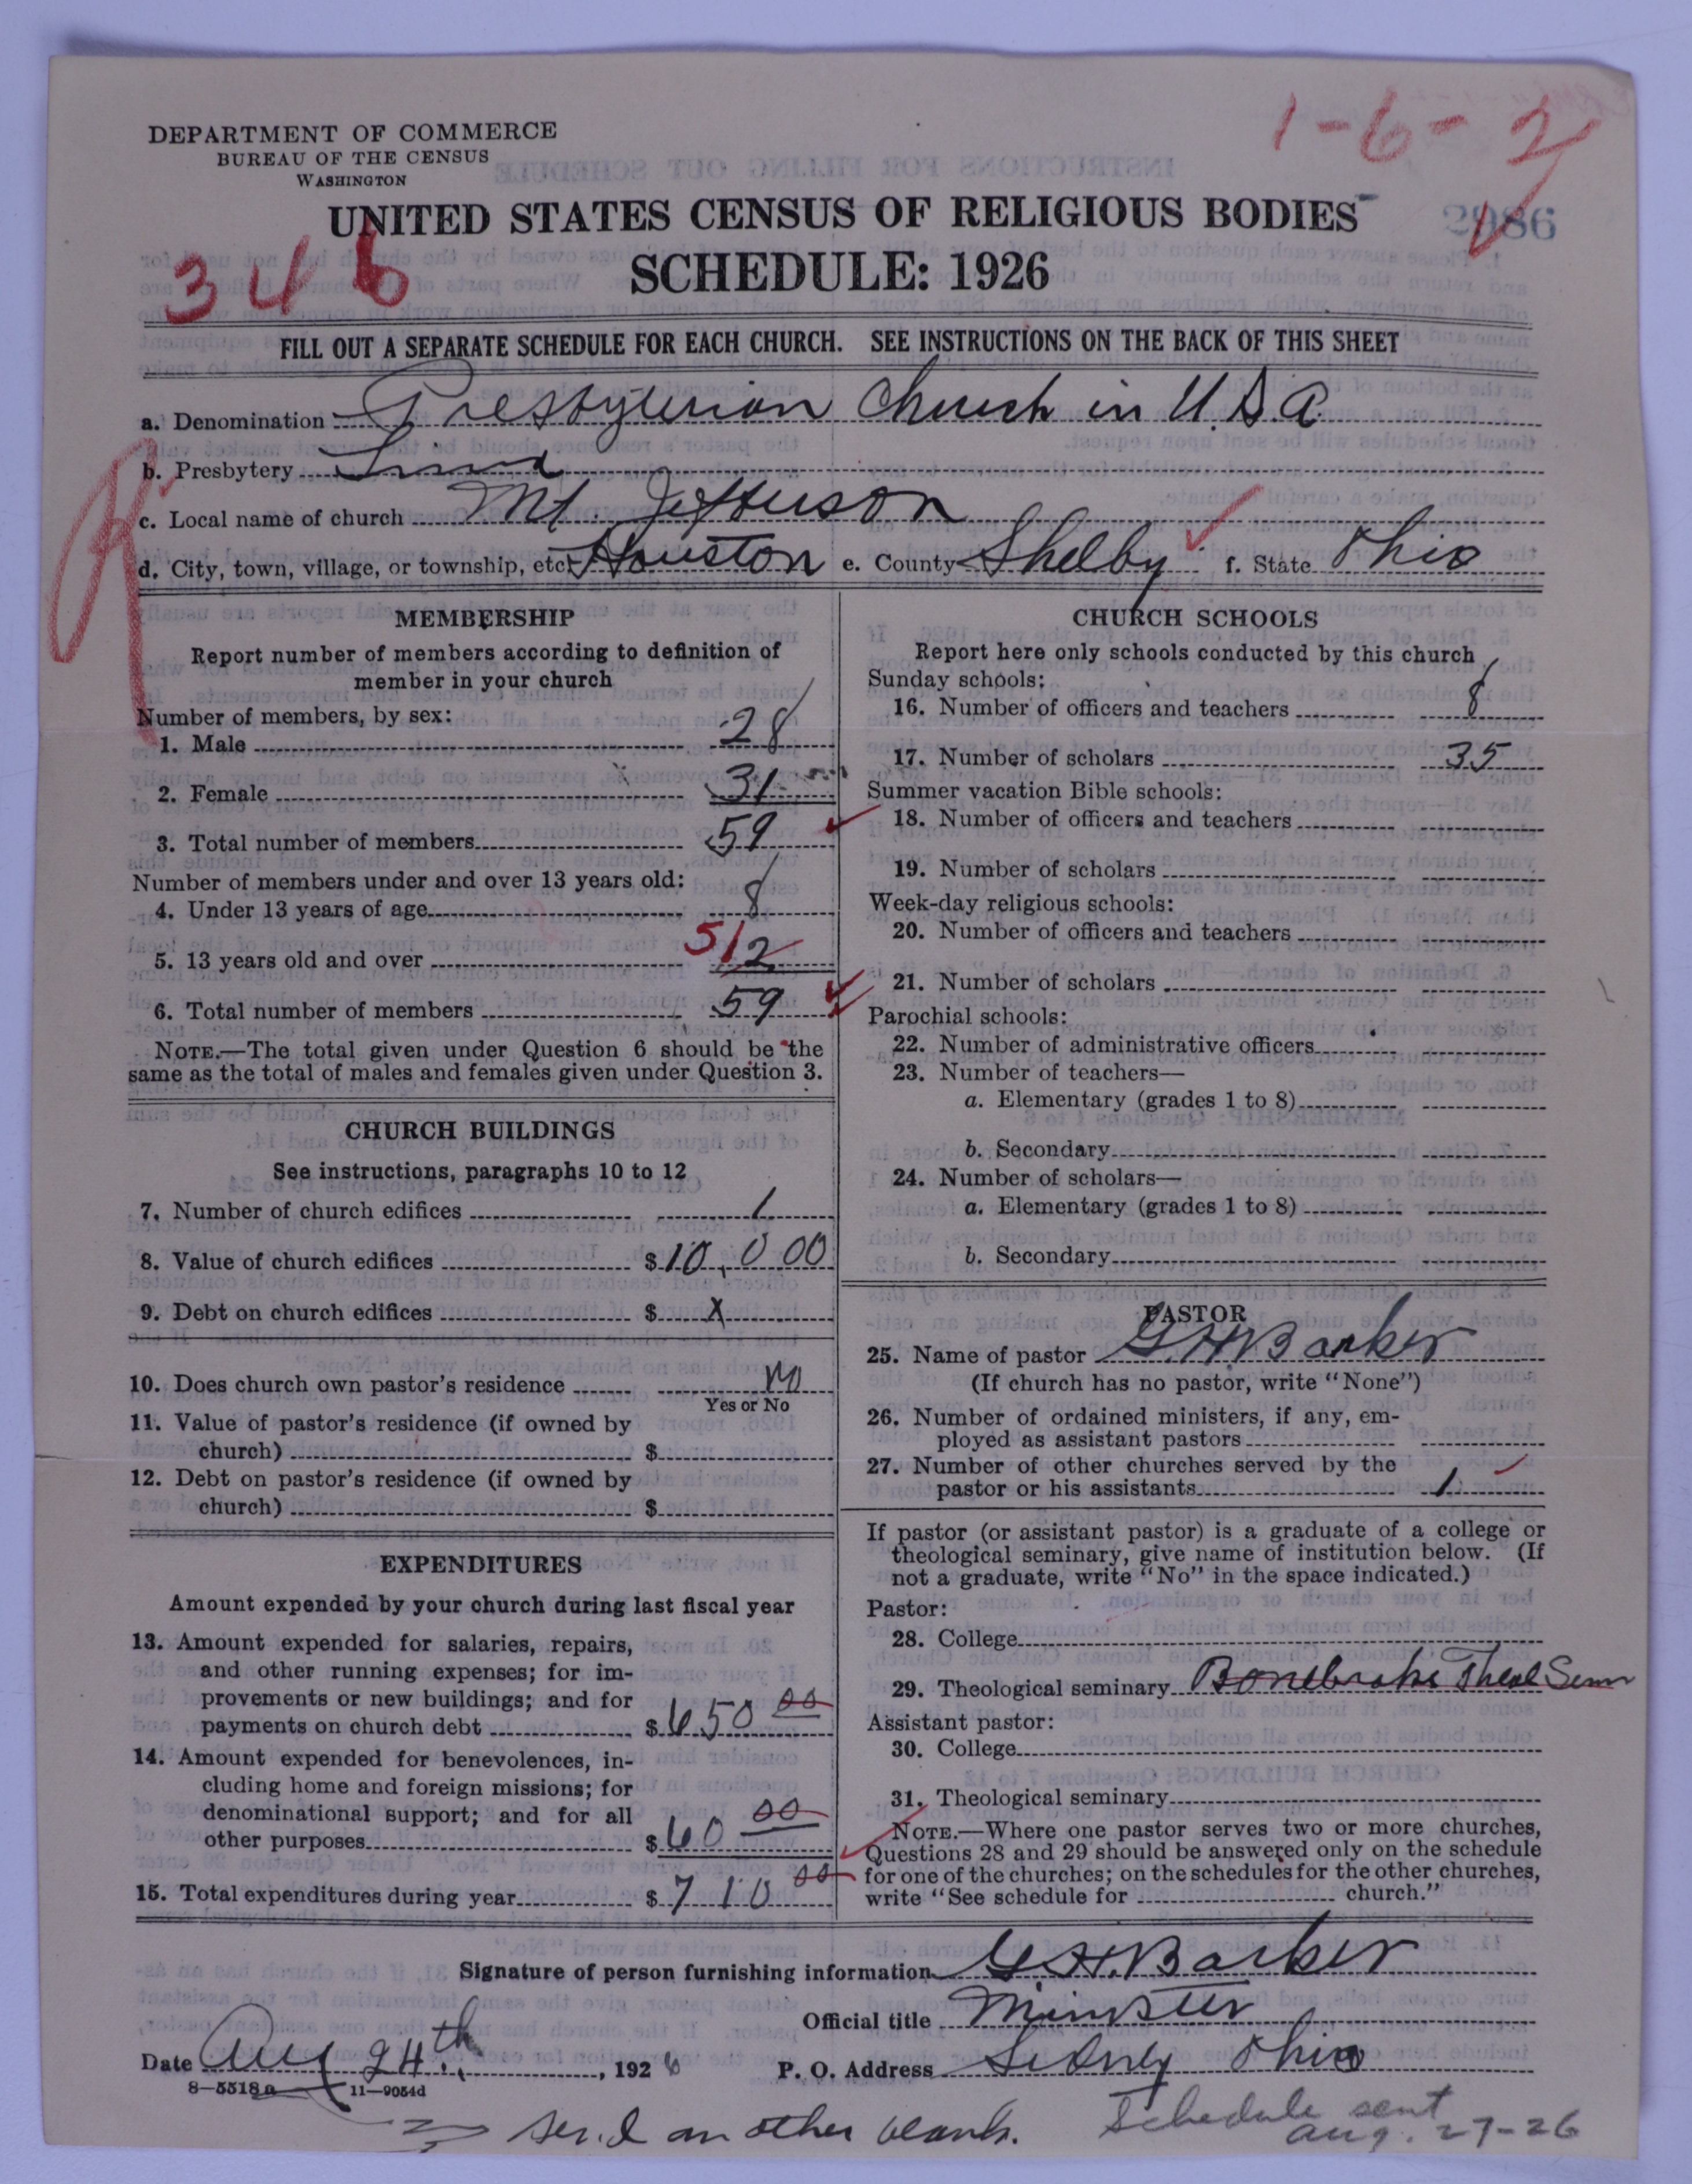 1-6-2
DEPARTMENT OF COMMERCE
BUREAU OF THE CENSUS
WASHINGTON
UNITED STATES CENSUS OF RELIGIOUS BODIES
2986
346
SCHEDULE: 1926
FILL OUT A SEPARATE SCHEDULE FOR EACH CHURCH. SEE INSTRUCTIONS ON THE BACK OF THIS SHEET
a. Denomination Presbyterian Church in U.S.A.
b. Presbytery Lima
c. Local name of church Mt. Jefferson
d. City, town, village, or township, etc. Houston e. County Shelby f. State Ohio
MEMBERSHIP
Report number of members according to definition of
member in your church
Number of members, by sex:
1. Male 28
2. Female 31
3. Total number of members 59
Number of members under and over 13 years old:
4. Under 13 years of age 8
5. 13 years old and over 512
6. Total number of members 59
NOTE.—The total given under Question 6 should be the
same as the total of males and females given under Question 3.
CHURCH BUILDINGS
See instructions, paragraphs 10 to 12
7. Number of church edifices 1
8. Value of church edifices $10,000
9. Debt on church edifices $ X
10. Does church own pastor's residence No
Yes or No
11. Value of pastor's residence (if owned by
church) $
12. Debt on pastor's residence (if owned by
church) $
EXPENDITURES
Amount expended by your church during last fiscal year
13. Amount expended for salaries, repairs,
and other running expenses; for im-
provements or new buildings; and for
payments on church debt $650 00
14. Amount expended for benevolences, in-
cluding home and foreign missions; for
denominational support; and for all
other purposes $60 00
15. Total expenditures during year $710 00
CHURCH SCHOOLS
Report here only schools conducted by this church
Sunday schools:
16. Number of officers and teachers 8
17. Number of scholars 35
Summer vacation Bible schools:
18. Number of officers and teachers
19. Number of scholars
Week-day religious schools:
20. Number of officers and teachers
21. Number of scholars
Parochial schools:
22. Number of administrative officers
23. Number of teachers—
a. Elementary (grades 1 to 8)
b. Secondary
24. Number of scholars—
a. Elementary (grades 1 to 8)
b. Secondary
PASTOR
25. Name of pastor G.H. Barker
(If church has no pastor, write "None")
26. Number of ordained ministers, if any, em-
ployed as assistant pastors
27. Number of other churches served by the
pastor or his assistants 1
If pastor (or assistant pastor) is a graduate of a college or
theological seminary, give name of institution below. (If
not a graduate, write "No" in the space indicated.)
Pastor:
28. College
29. Theological seminary Bonebrake Theol Sem
Assistant pastor:
30. College
31. Theological seminary
NOTE.—Where one pastor serves two or more churches,
Questions 28 and 29 should be answered only on the schedule
for one of the churches; on the schedules for the other churches,
write "See schedule for church."
Signature of person furnishing information G.H. Barker
Official title Minister
Date Aug 24th, 1926 P. O. Address Sidney Ohio
8-5518a 11-9054d
send another blank.
Schedule sent
aug. 27-26